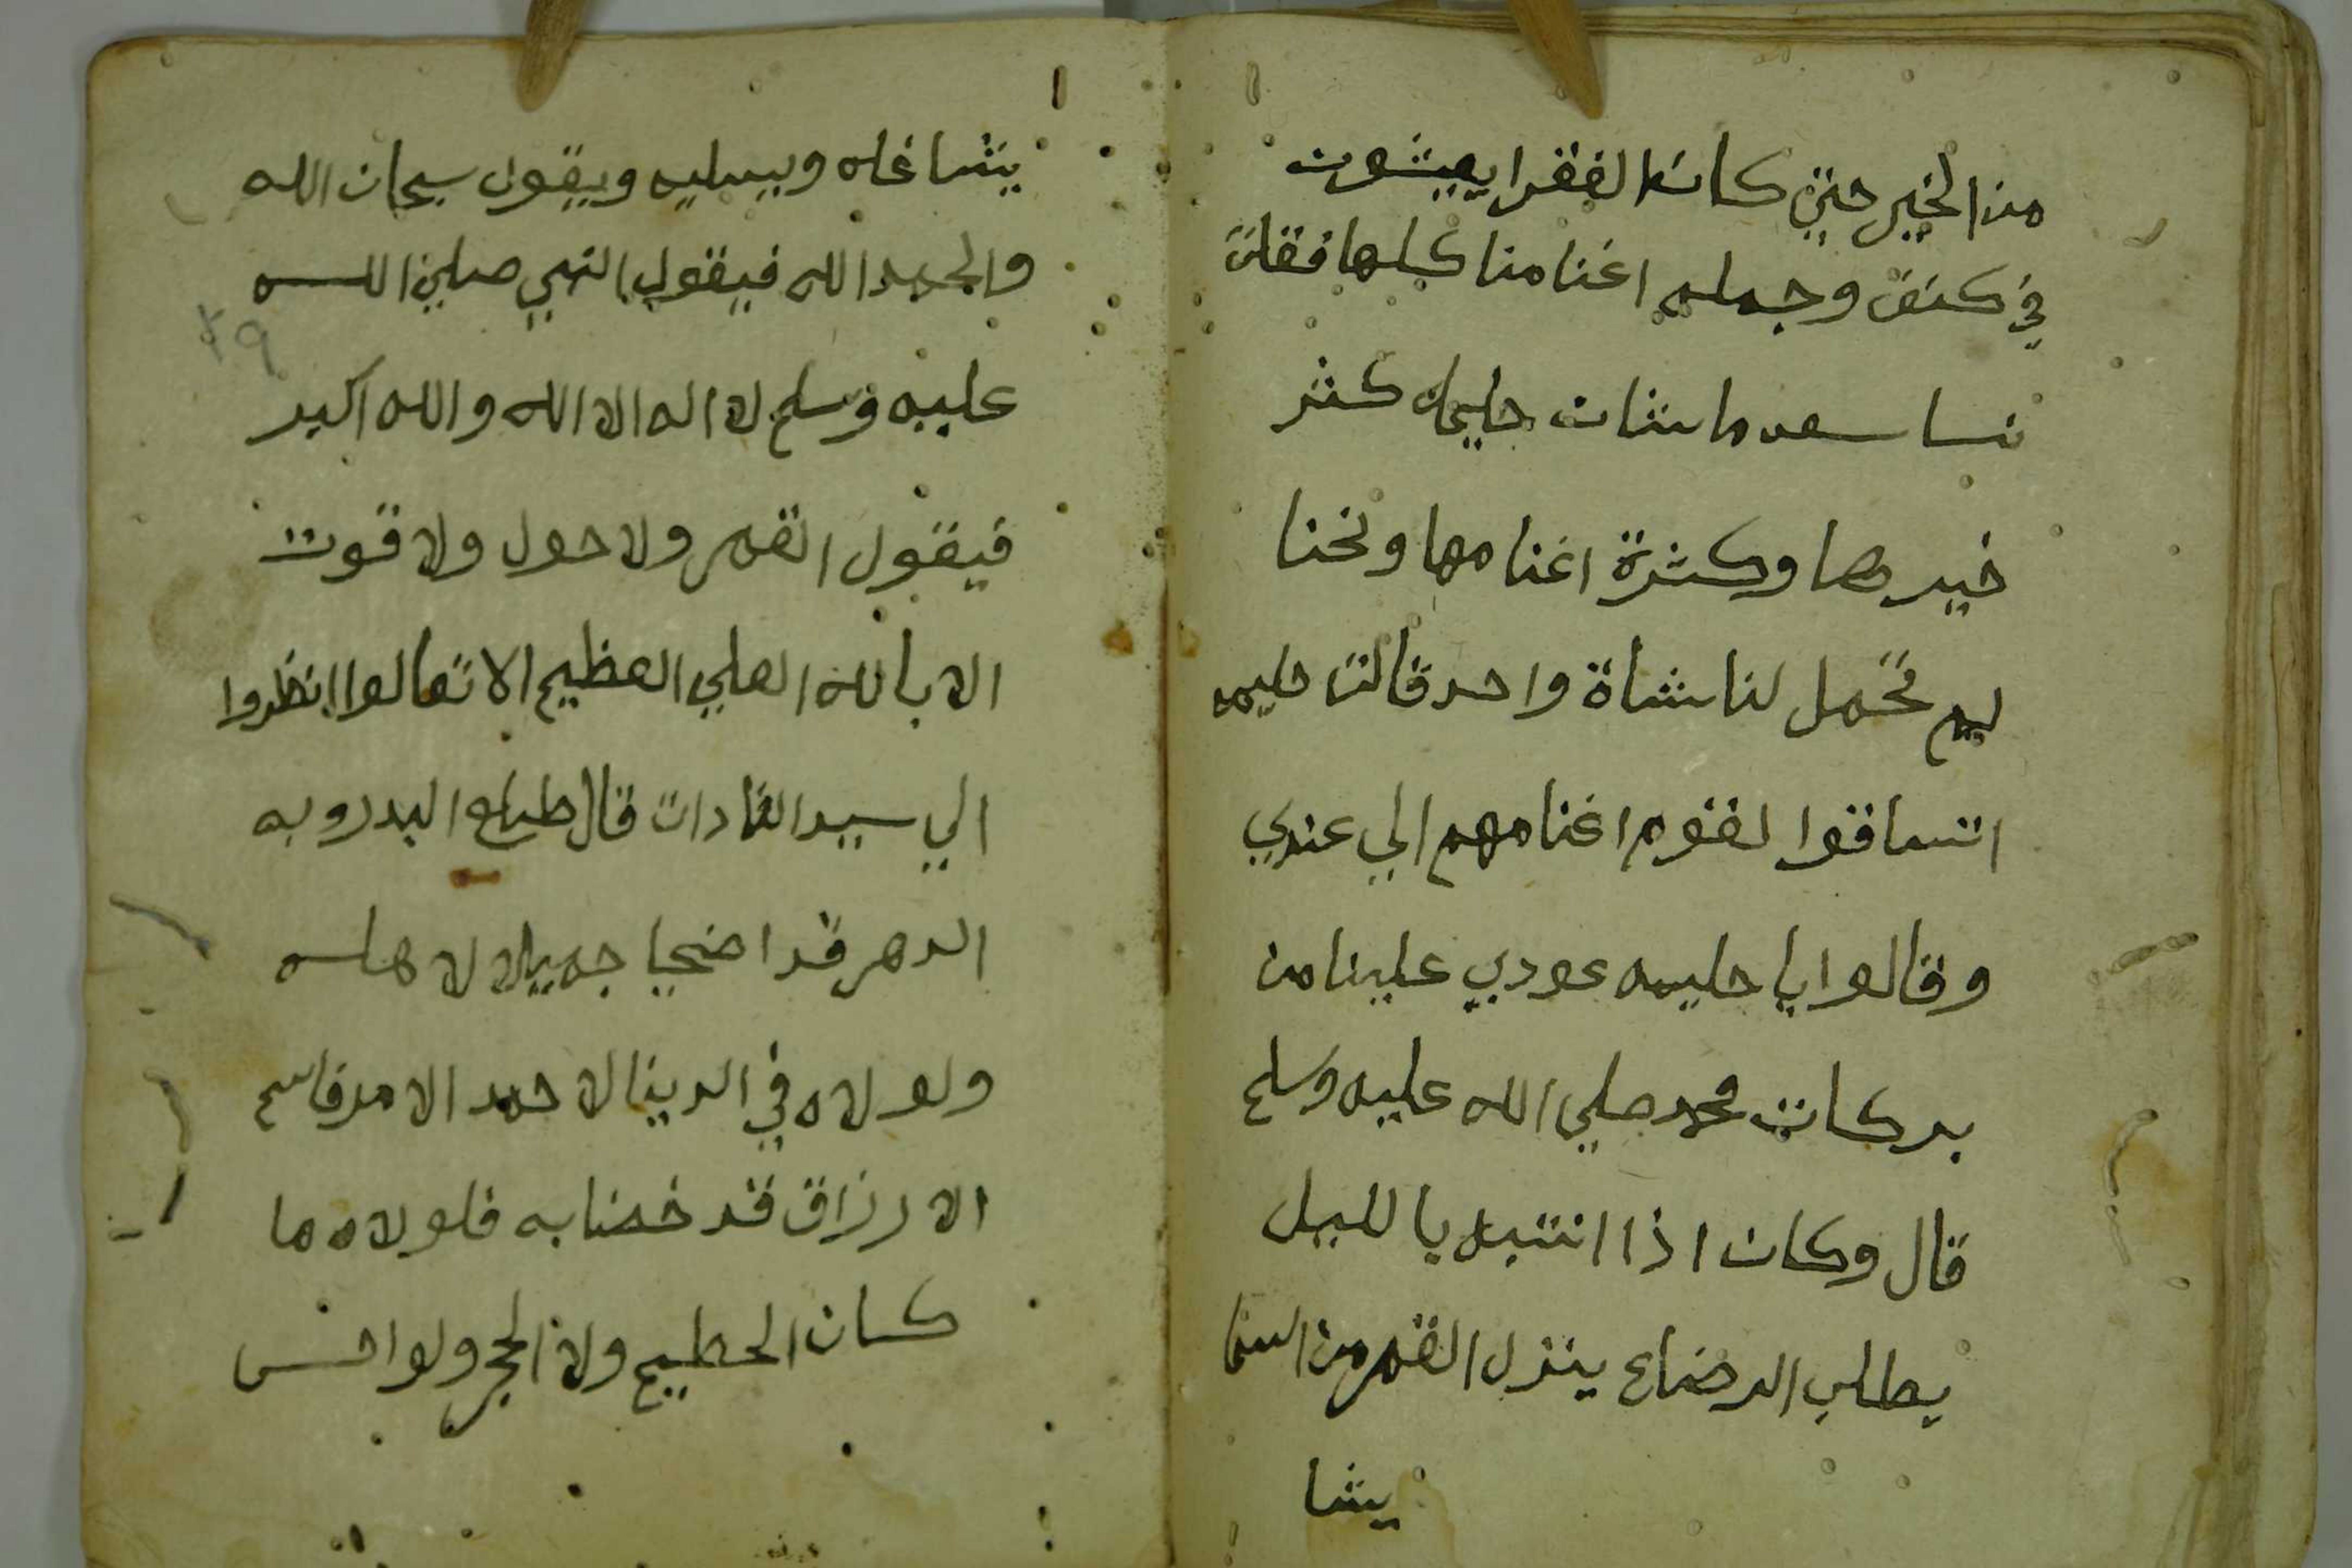 من الخير حتي كانت الفقرا يعيشون
في كنفي وجملة اغنامنا كلها فقلن
نسا سعد ما شات حليمه كثر
خيرها وكثرة اغنامها ونحنا
لم تحمل لنا شاة واحد قالت حليمه
اتساقوا لقوم اغنامهم الي عندي
وقالوا يا حليمه عودي علينا من
بركات محمد صلي الله عليه وسلم
قال وكان اذا انتبه بالليل
يطلب الرضاع ينزل القمر من السما
يشا
يشاغله ويسليه ويقول سبحان الله
والحمد الله فيقول النبي صلي الله
عليه وسلم لا اله الا الله والله اكبر
فيقول القمر ولا حول ولا قوت
الا بالله العلي العظيم الا تعالوا انظروا
الي سيد القادات قال طباع البدر وبه
الدهر قد اضحيا جميلا لاهله
ولولاه في الدينا لا حمد الامر قاسم
الارزاق قد خضنا به فلولاه ما
كان الحطيم ولا الحجر ولو احسن
٢٩